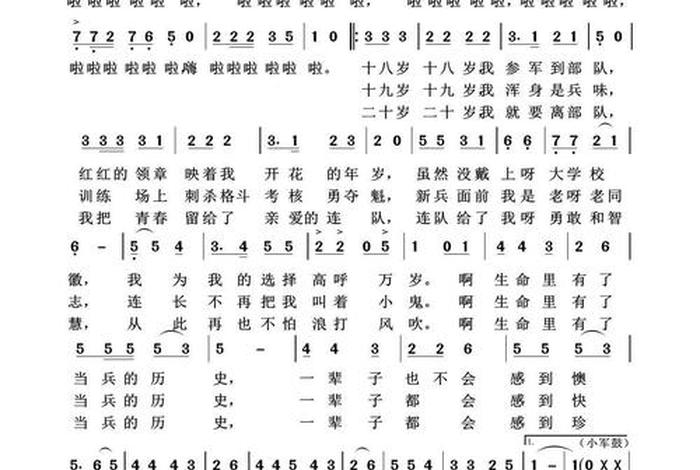 啦啦啦啦啦啦啦， 啦啦啦啦啦， 啦啦啦啦，啦啦啦啦，
7 7 2 7 6 5 0 | 2 2 2 3 5 | 1 0 |: 3 3 3 | 2 2 2 2 | 3. 1 2 1 | 5 0 |
啦啦啦啦啦 啦嗨 啦啦啦啦啦 啦。 十八岁 十八岁我 参军到部 队，
十九岁 十九岁我 浑身是兵 味，
二十岁 二十岁我 就要离部 队，
3 3 3 3 1 | 2 2 2 | 3. 1 2 3 | 2 0 | 5 5 3 1 | 6 6 | 7 7 2 1 |
红红的 领章 映着我 开花 的年 岁， 虽然没戴 上呀 大学校
训练 场上 刺杀格斗 考核 勇夺 魁， 新兵面前 我是 老呀老同
我把 青春 留给了 亲爱的 连 队， 连队给了 我呀 勇敢和智
6 - | 5 5 4 | 3. 4 5 5 | 2 2 0 5 | 1 0 1 | 4 4 3 | 2 6 |
徽， 我 为 我的选择 高呼 万 岁。 啊 生命里 有了
志， 连 长 不再把我 叫着 小 鬼。 啊 生命里 有了
慧， 从 此 再也不怕 浪打 风 吹。 啊 生命里 有了
5 5 5 5 3 | 5 - | 4 4 3 | 2 2 6 | 5 5 5 3 |
当兵的历 史， 一辈子 也不会 感到懊
当兵的历 史， 一辈子 都 会 感到快
当兵的历 史， 一辈子 都 会 感到珍
1. （小军鼓）